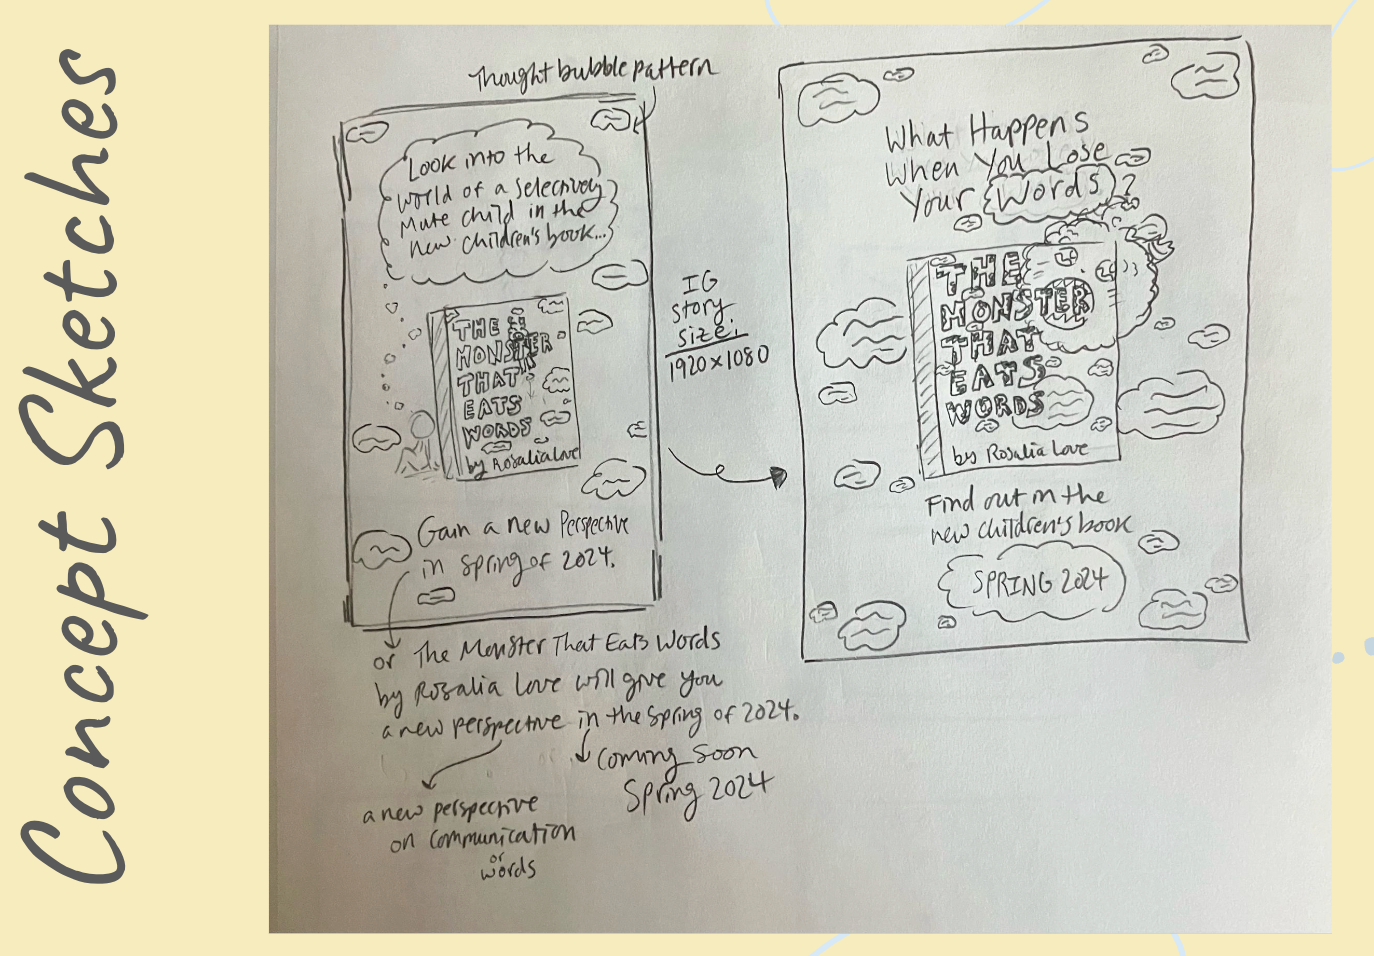 Concept Sketches
Thought bubble pattern
Look into the
world of a selectively
Mute child in the
new children's book...
THE
MONSTER
THAT
EATS
WORDS
by Rosalia Love
Gain a new Perspective
in Spring of 2024.
or The Monster That Eats Words
by Rosalia Love will give you
a new perspective in the Spring of 2024.
Coming Soon
Spring 2024
a new perspective
on communication
or
words
IG
story
size:
1920x1080
What Happens
When You Lose
Your Words?
THE
MONSTER
THAT
EATS
WORDS
by Rosalia Love
Find out in the
new children's book
SPRING 2024